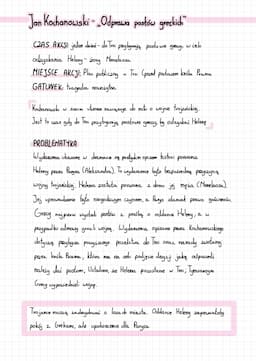 Jan Kochanowski - "Odprawa posłów greckich"
CZAS AKCJI: jeden dzień - do Troi przybywają posłowie greccy w celu
odzyskania Heleny - żony Menelaosa.
MIEJSCE AKCJI: Plac publiczny - Troi (przed pałacem króla Priama
GATUNEK: tragedia renesansowa
Kochanowski w swoim utworze nawiązuje do mitu o wojnie trojańskiej.
Jest to czas gdy do Troi przybywają posłowie greccy, by odzyskać Helenę
PROBLEMATYKA
Wydarzenia ukazane w dramacie są podjęciem opisem historii porwania
Heleny przez Parysa (Aleksandra). To wydarzenie było bezpośrednią przyczyną
wojny trojańskiej. Helena została porwana z domu jej męża (Menelaosa).
Jej uprowadzenie było niegodnym czynem, a Parys złamał prawo gościnności.
Grecy najpierw wysłali posłów z prośbą o oddanie Heleny, a w
przypadku odmowy grozili wojną. Wydarzenia opisane przez Kochanowskiego
dotyczą przybycia posłów do Troi oraz narady zwołanej
przez króla Priama, która ma na celu podjęcie decyzji jakiej odpowiedzi
należy dać posłom. Ustalono, że Helena pozostanie w Troi, tymczasem
Grecy wypowiedzieli wojnę.
Trojanie muszą zadecydować o losach miasta. Oddanie Heleny zapewniłoby
pokój z Grekami, ale upokorzenie dla Parysa